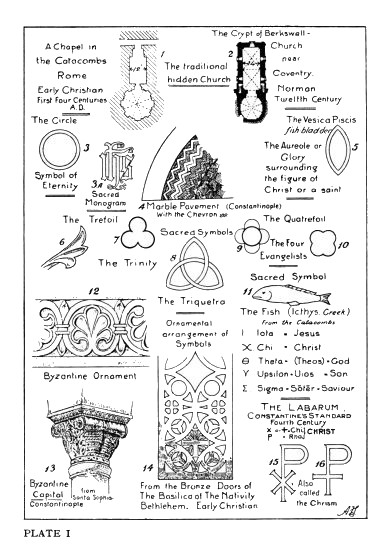 A Chapel in
the Catacombs
Rome
Early Christian
First Four Centuries
A.D.
1
The traditional
hidden Church
The Crypt of Berkswell-
2
Church
near
Coventry.
Norman
Twelfth Century
The Circle
3
Symbol of
Eternity
3A
Sacred
Monogram
4 Marble Pavement (Constantinople)
With the Chevron
The Vesica Piscis
fish bladder
The Aureole or
Glory
surrounding
the figure of
Christ or a saint
5
The Trefoil
6
7
The Trinity
Sacred Symbols
8
The Triquetra
The Quatrefoil
9
The Four
Evangelists
10
Sacred Symbol
11
The Fish (Icthys. Greek)
From the Catacombs
I Iota = Jesus
X Chi = Christ
Θ Theta = (Theos) = God
Υ Upsilon = Uios = Son
Σ Sigma = Sōtēr = Saviour
12
Byzantine Ornament
Ornamental
arrangement of
Symbols
13
Byzantine
Capital
Constantinople
from
Santa Sophia
14
From the Bronze Doors of
The Basilica of The Nativity
Bethlehem. Early Christian
The Labarum
Constantine's Standard
Fourth Century
X = + = Chi} CHRIST
P = Rho}
15
16
Also
called
the Chrism
PLATE I